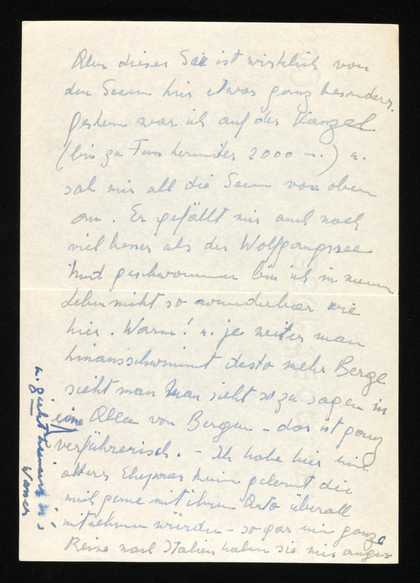 Aber dieser See ist wirklich von
den Seen hier etwas ganz besonders.
Gestern war ich auf der Kanzel
(bis zu Fuss herunter 2000 m.) u.
sah mir all die Seen von oben
an. Er gefällt mir auch noch
viel besser als der Wolfgangsee
Und geschwommen bin ich in meinem
Leben nicht so wunderbar wie
hier. Warm! u. je weiter man
hinausschwimmt desto mehr Berge
sieht man Man sieht so zu sagen in
eine Allee von Bergen – das ist ganz
verführerisch. – Ich habe hier ein
älteres Ehepaar kennen gelernt die
mich gerne mit ihrem Auto überall
mitnehmen würden – sogar eine ganze
Reise nach Italien haben sie mir
u. geht in's
Wasser